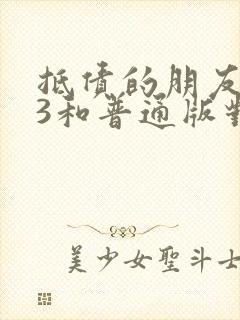 抵债的朋友
3和普通版對
美少女聖斗士